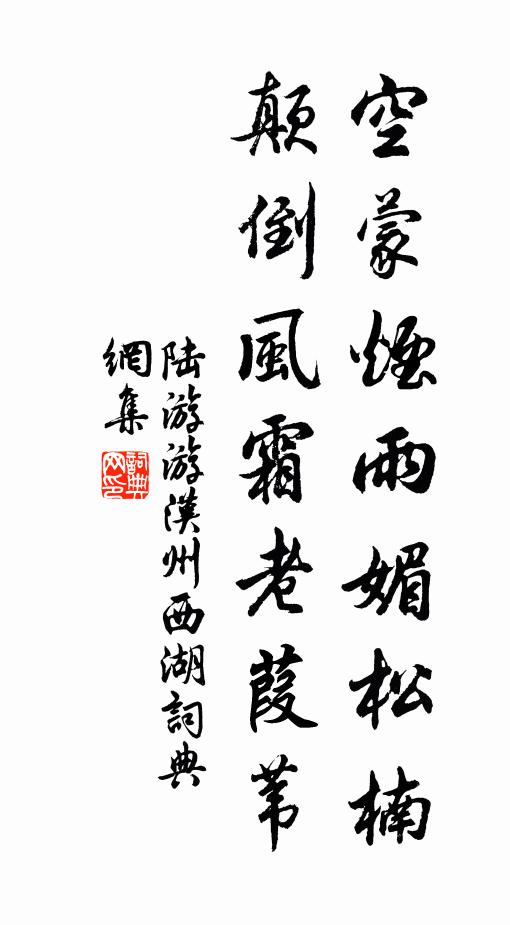 空蒙煙雨媚松楠
颠倒風霜老葭苇
陆游游漢州西湖詞典
網集
詞典
网印